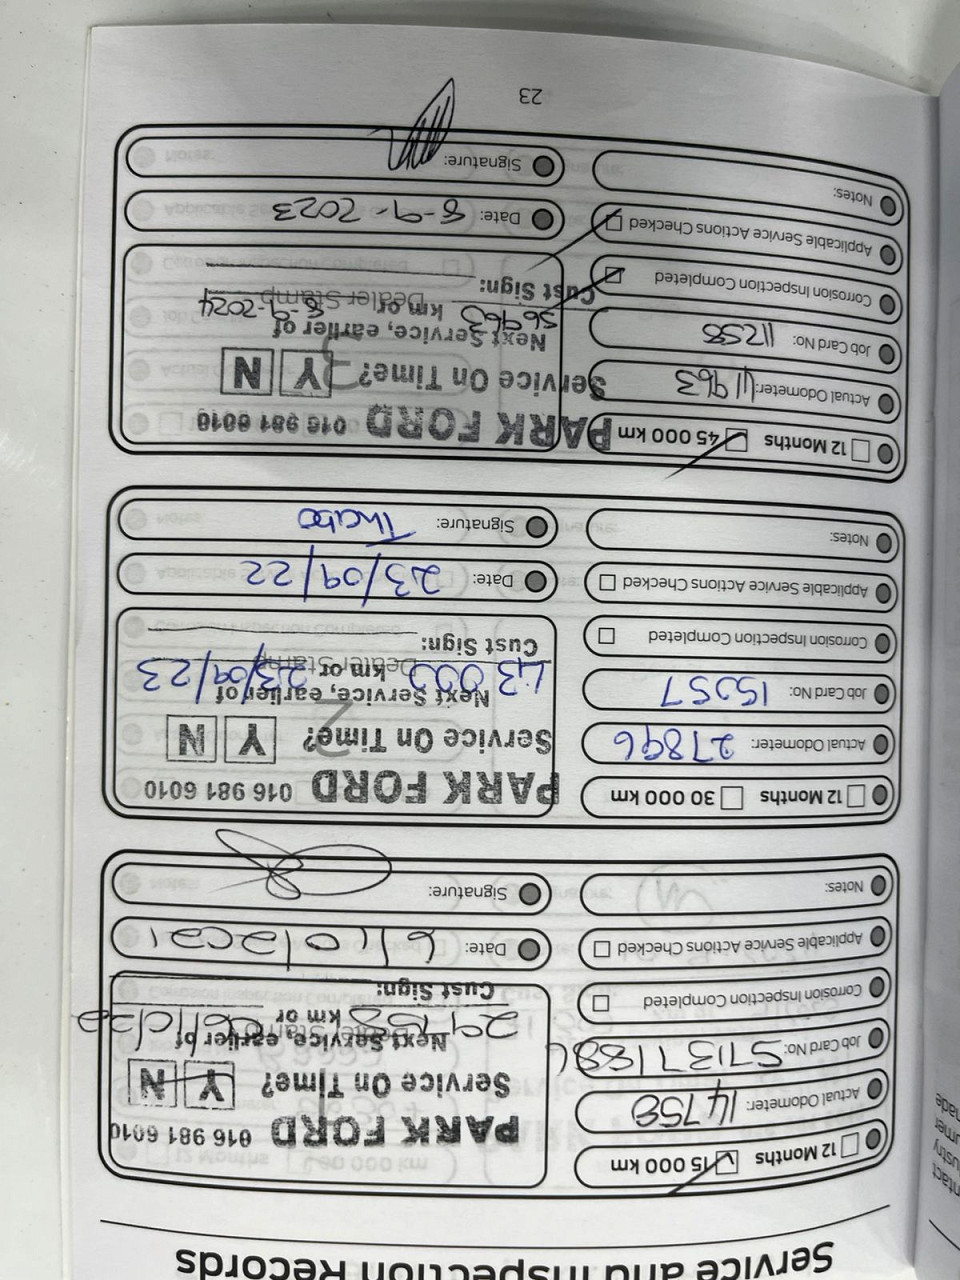 Service and Inspection Records
12 Months 15 000 km
Actual Odometer: 14758
Job Card No:
Corrosion Inspection Completed
Applicable Service Actions Checked
Notes:
PARK FORD 016 981 6010
Service On Time? Y N
Next Service, earlier of
29758 km or
Dealer Stamp
Cust Sign:
Date: 6/10/2021
Signature:
12 Months 30 000 km
Actual Odometer: 27896
Job Card No:
Corrosion Inspection Completed
Applicable Service Actions Checked
Notes:
PARK FORD 016 981 6010
Service On Time? Y N
Next Service, earlier of
43 000 km or 23/09/23
Dealer Stamp
Cust Sign:
Date: 23/09/22
Signature: Thabo
12 Months 45 000 km
Actual Odometer: 41963
Job Card No: 11258
Corrosion Inspection Completed
Applicable Service Actions Checked
Notes:
PARK FORD 016 981 6010
Service On Time? Y N
Next Service, earlier of
56963 km or 8-9-2024
Dealer Stamp
Cust Sign:
Date: 8-9-2023
Signature:
23